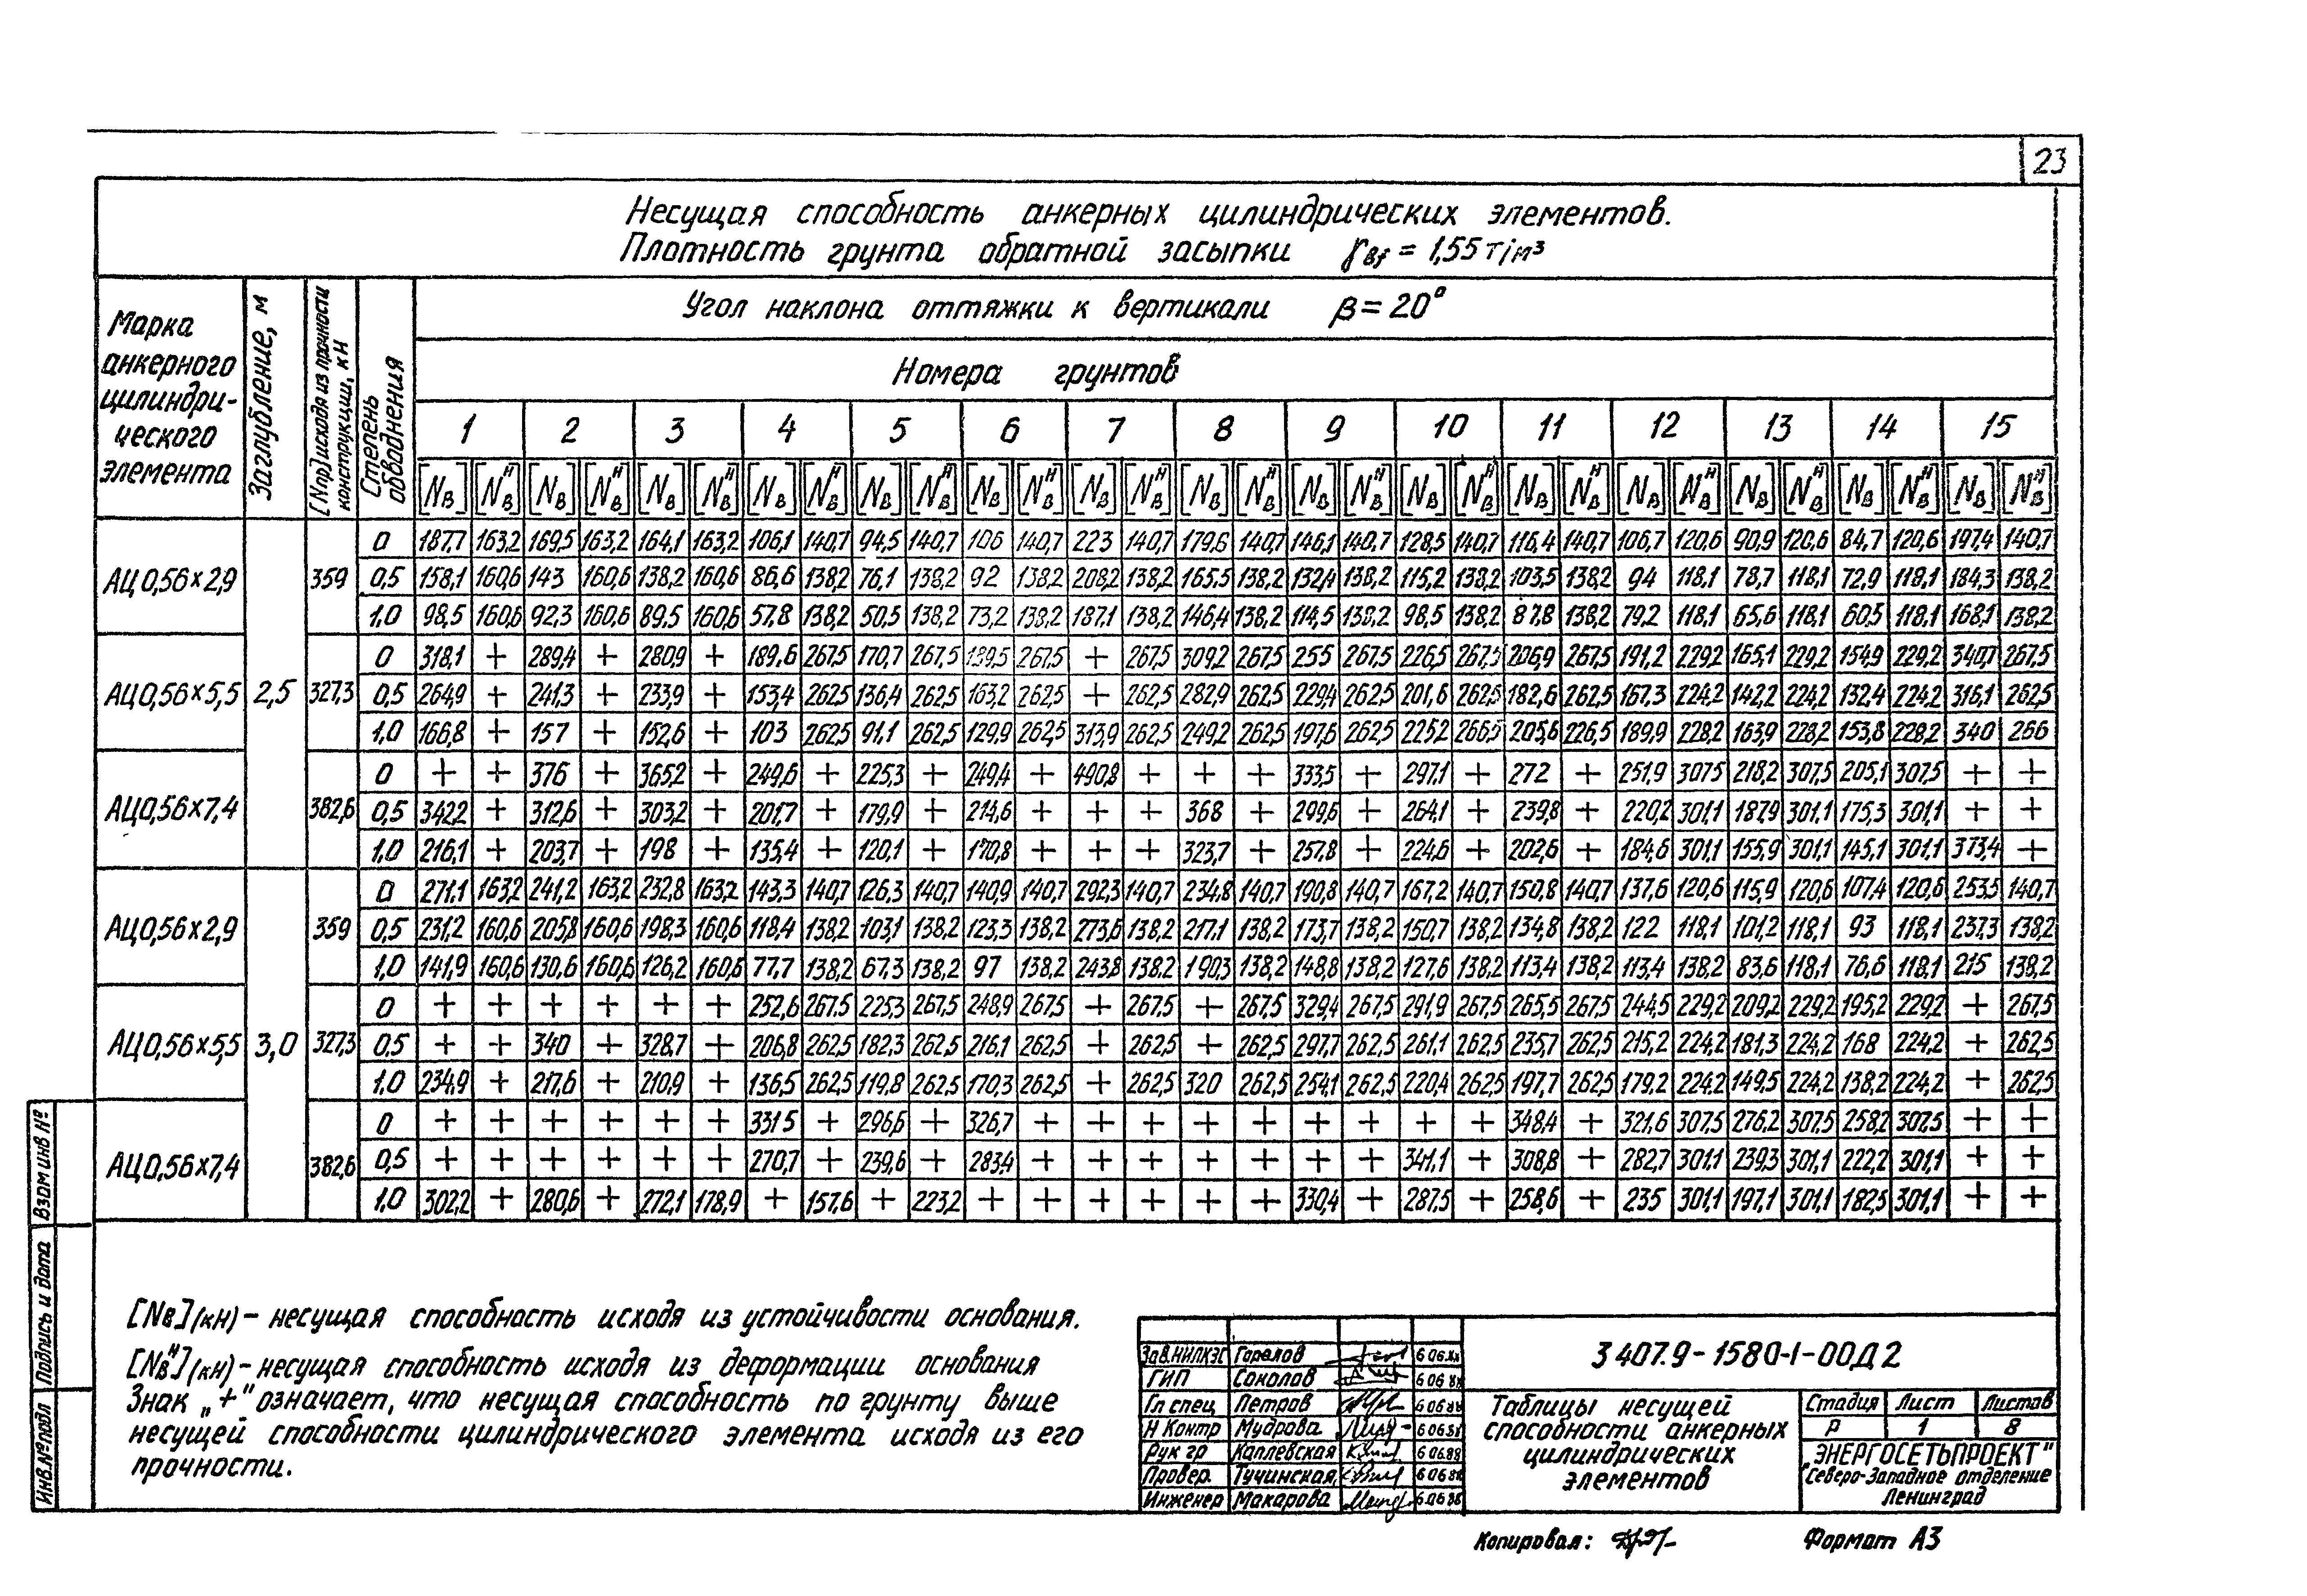 23
Несущая способность анкерных цилиндрических элементов.
Плотность грунта обратной засыпки γвf = 1,55 т/м³
Марка анкерного цилиндри-ческого элемента
Заглубление, м
[Nпр] исходя из прочности конструкции, кН
Степень обводнения
Угол наклона оттяжки к вертикали β = 20°
Номера грунтов
1 2 3 4 5 6 7 8 9 10 11 12 13 14 15
[Nв] [Nвᴴ] [Nв] [Nвᴴ] [Nв] [Nвᴴ] [Nв] [Nвᴴ] [Nв] [Nвᴴ] [Nв] [Nвᴴ] [Nв] [Nвᴴ] [Nв] [Nвᴴ] [Nв] [Nвᴴ] [Nв] [Nвᴴ] [Nв] [Nвᴴ] [Nв] [Nвᴴ] [Nв] [Nвᴴ] [Nв] [Nвᴴ] [Nв] [Nвᴴ]
0 187,7 163,2 169,5 163,2 164,1 163,2 106,1 140,7 94,5 140,7 106 140,7 223 140,7 179,6 140,7 146,1 140,7 128,5 140,7 116,4 140,7 106,7 120,6 90,9 120,6 84,7 120,6 197,4 140,7
АЦ 0,56×2,9 359 0,5 158,1 160,6 143 160,6 138,2 160,6 86,6 138,2 76,1 138,2 92 138,2 208,2 138,2 165,5 138,2 132,4 138,2 115,2 138,2 103,5 138,2 94 118,1 78,7 118,1 72,9 118,1 184,3 138,2
1,0 98,5 160,6 92,3 160,6 89,5 160,6 57,8 138,2 50,5 138,2 73,2 138,2 187,1 138,2 146,4 138,2 114,5 138,2 98,5 138,2 87,8 138,2 79,2 118,1 65,6 118,1 60,5 118,1 168,1 138,2
0 318,1 + 289,4 + 280,9 + 189,6 267,5 170,7 267,5 189,5 267,5 + 267,5 309,2 267,5 255 267,5 226,5 267,5 206,9 267,5 191,2 229,2 165,1 229,2 154,9 229,2 340,7 267,5
АЦ 0,56×5,5 2,5 327,3 0,5 264,9 + 241,3 + 233,9 + 153,4 262,5 136,4 262,5 163,2 262,5 + 262,5 282,9 262,5 229,4 262,5 201,6 262,5 182,6 262,5 167,3 224,2 142,2 224,2 132,4 224,2 316,1 262,5
1,0 166,8 + 157 + 152,6 + 103 262,5 91,1 262,5 129,9 262,5 313,9 262,5 249,2 262,5 197,6 262,5 225,2 266,5 205,6 226,5 189,9 228,2 163,9 228,2 153,8 228,2 340 266
0 + + 376 + 365,2 + 249,6 + 225,3 + 249,4 + 490,8 + + + 333,5 + 297,1 + 272 + 251,9 307,5 218,2 307,5 205,1 307,5 + +
АЦ 0,56×7,4 382,6 0,5 342,2 + 312,6 + 303,2 + 201,7 + 179,9 + 214,6 + + + 368 + 299,6 + 264,1 + 239,8 + 220,2 301,1 187,9 301,1 175,3 301,1 + +
1,0 216,1 + 203,7 + 198 + 135,4 + 120,1 + 170,8 + + + 323,7 + 257,8 + 224,6 + 202,6 + 184,6 301,1 155,9 301,1 145,1 301,1 373,4 +
0 271,1 163,2 241,2 163,2 232,8 163,2 143,3 140,7 126,3 140,7 140,9 140,7 292,3 140,7 234,8 140,7 190,8 140,7 167,2 140,7 150,8 140,7 137,6 120,6 115,9 120,6 107,4 120,6 253,5 140,7
АЦ 0,56×2,9 359 0,5 231,2 160,6 205,8 160,6 198,3 160,6 118,4 138,2 103,1 138,2 123,3 138,2 273,6 138,2 217,1 138,2 173,7 138,2 150,7 138,2 134,8 138,2 122 118,1 101,2 118,1 93 118,1 237,3 138,2
1,0 141,9 160,6 130,6 160,6 126,2 160,6 77,7 138,2 67,3 138,2 97 138,2 243,8 138,2 190,3 138,2 148,8 138,2 127,6 138,2 113,4 138,2 113,4 138,2 83,6 118,1 76,6 118,1 215 138,2
0 + + + + + + 252,6 267,5 225,3 267,5 248,9 267,5 + 267,5 + 267,5 329,4 267,5 291,9 267,5 265,5 267,5 244,5 229,2 209,2 229,2 195,2 229,2 + 267,5
АЦ 0,56×5,5 3,0 327,3 0,5 + + 340 + 328,7 + 206,8 262,5 182,3 262,5 216,1 262,5 + 262,5 + 262,5 297,7 262,5 261,1 262,5 235,7 262,5 215,2 224,2 181,3 224,2 168 224,2 + 262,5
1,0 234,9 + 217,6 + 210,9 + 136,5 262,5 119,8 262,5 170,3 262,5 + 262,5 320 262,5 254,1 262,5 220,4 262,5 197,7 262,5 179,2 224,2 149,5 224,2 138,2 224,2 + 262,5
0 + + + + + + 331,5 + 296,6 + 326,7 + + + + + + + + + 348,4 + 321,6 307,5 276,2 307,5 258,2 307,5 + +
АЦ 0,56×7,4 382,6 0,5 + + + + + + 270,7 + 239,6 + 283,4 + + + + + + + 341,1 + 308,8 + 282,7 301,1 239,3 301,1 222,2 301,1 + +
1,0 302,2 + 280,6 + 272,1 178,9 + 157,6 + 223,2 + + + + + + 330,4 + 287,5 + 258,6 + 235 301,1 197,1 301,1 182,5 301,1 + +
[Nв] (кН) – несущая способность исходя из устойчивости основания.
[Nвᴴ] (кН) – несущая способность исходя из деформации основания
Знак „+" означает, что несущая способность по грунту выше
несущей способности цилиндрического элемента исходя из его
прочности.
Взам инв №
Подпись и дата
Инв.№ подл
Зав.НИЛКЭС Горелов
ГИП Соколов
Гл спец Петров
Н Контр Мудрова
Рук гр Каплевская
Провер. Тучинская
Инженер Макарова
3 407.9-1580-1-00Д2
Таблицы несущей
способности анкерных
цилиндрических
элементов
Стадия Лист Листов
Р 1 8
ЭНЕРГОСЕТЬПРОЕКТ"
Северо-Западное отделение
Ленинград
Копировал:
Формат А3